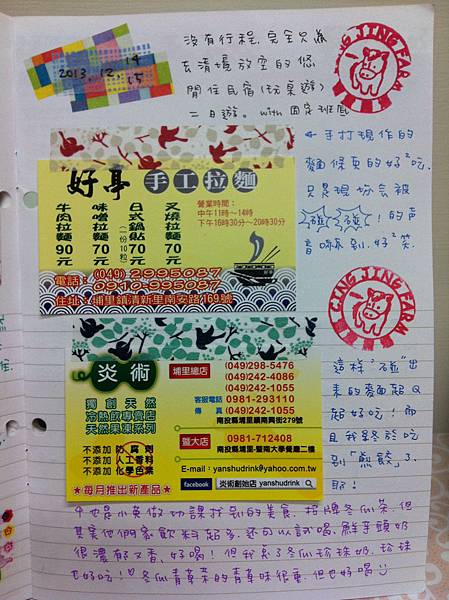 2013.12.14
15
沒有行程，完全只為
去清境放空的悠
閒住民宿(玩桌遊)
二日遊。with 固定班底
CING JING FARM
←手打現作的
麵條真的好好吃.
只是現場會被
碰 碰!的声
音嚇到.好好笑.
好亭 手工拉麵
叉燒拉麵 70元
日式鍋貼 70元
(一份10粒)
味噌拉麵 70元
牛肉拉麵 90元
營業時間：
中午11時～14時
下午16時30分～20時30分
電話：(049)2995087
0910-995087
住址：埔里鎮清新里南安路169號
CING JING FARM
這樣"碰"出
來的麵超Q
超好吃!而
且我終於吃
到「煎餃」了
耶!
炎術
獨創天然
冷熱飲專賣店
天然果凍系列
不添加 防腐劑
不添加 人工香料
不添加 化學色素
★每月推出新產品★
埔里總店
(049)298-5476
(049)242-4086
(049)242-1055
客服電話 0981-293110
傳真 (049)242-1055
南投縣埔里鎮南興街279號
暨大店
0981-712408
南投縣埔里-暨南大學餐廳二樓
E-mail：yanshudrink@yahoo.com.tw
facebook 炎術創始店 yanshudrink
也是小魚做功課找到的美食.招牌冬瓜茶.但
其實他們家飲料超多.還可以試喝.鮮芋頭奶
很濃郁又香.好喝!但我点了冬瓜珍珠奶.珍珠
也好吃!♡冬瓜青草茶的青草味很重.但也好喝☺